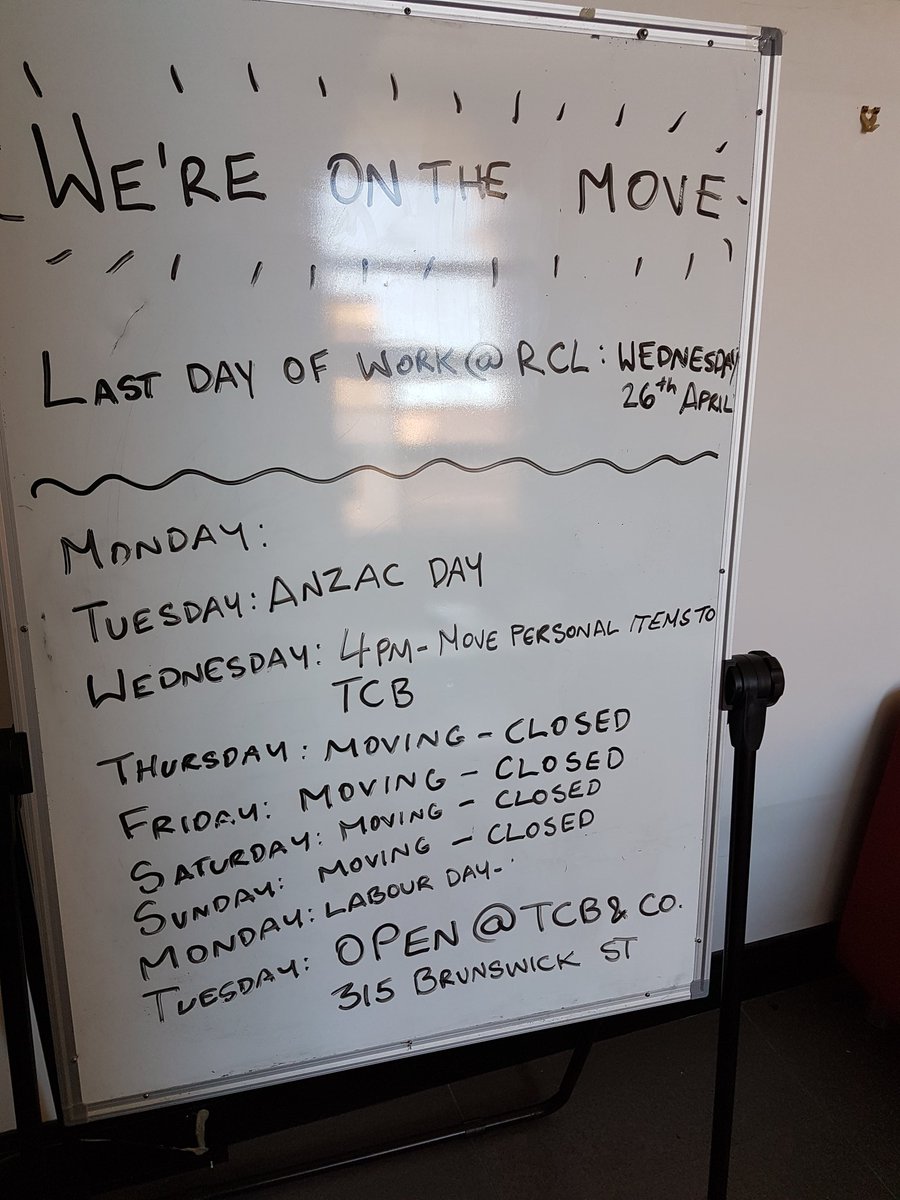 WE'RE ON THE MOVE
LAST DAY OF WORK @ RCL: WEDNESDAY
26th APRIL
MONDAY:
TUESDAY: ANZAC DAY
WEDNESDAY: 4PM - MOVE PERSONAL ITEMS TO
TCB
THURSDAY: MOVING - CLOSED
FRIDAY: MOVING - CLOSED
SATURDAY: MOVING - CLOSED
SUNDAY: MOVING - CLOSED
MONDAY: LABOUR DAY-
TUESDAY: OPEN @ TCB & CO.
315 BRUNSWICK ST